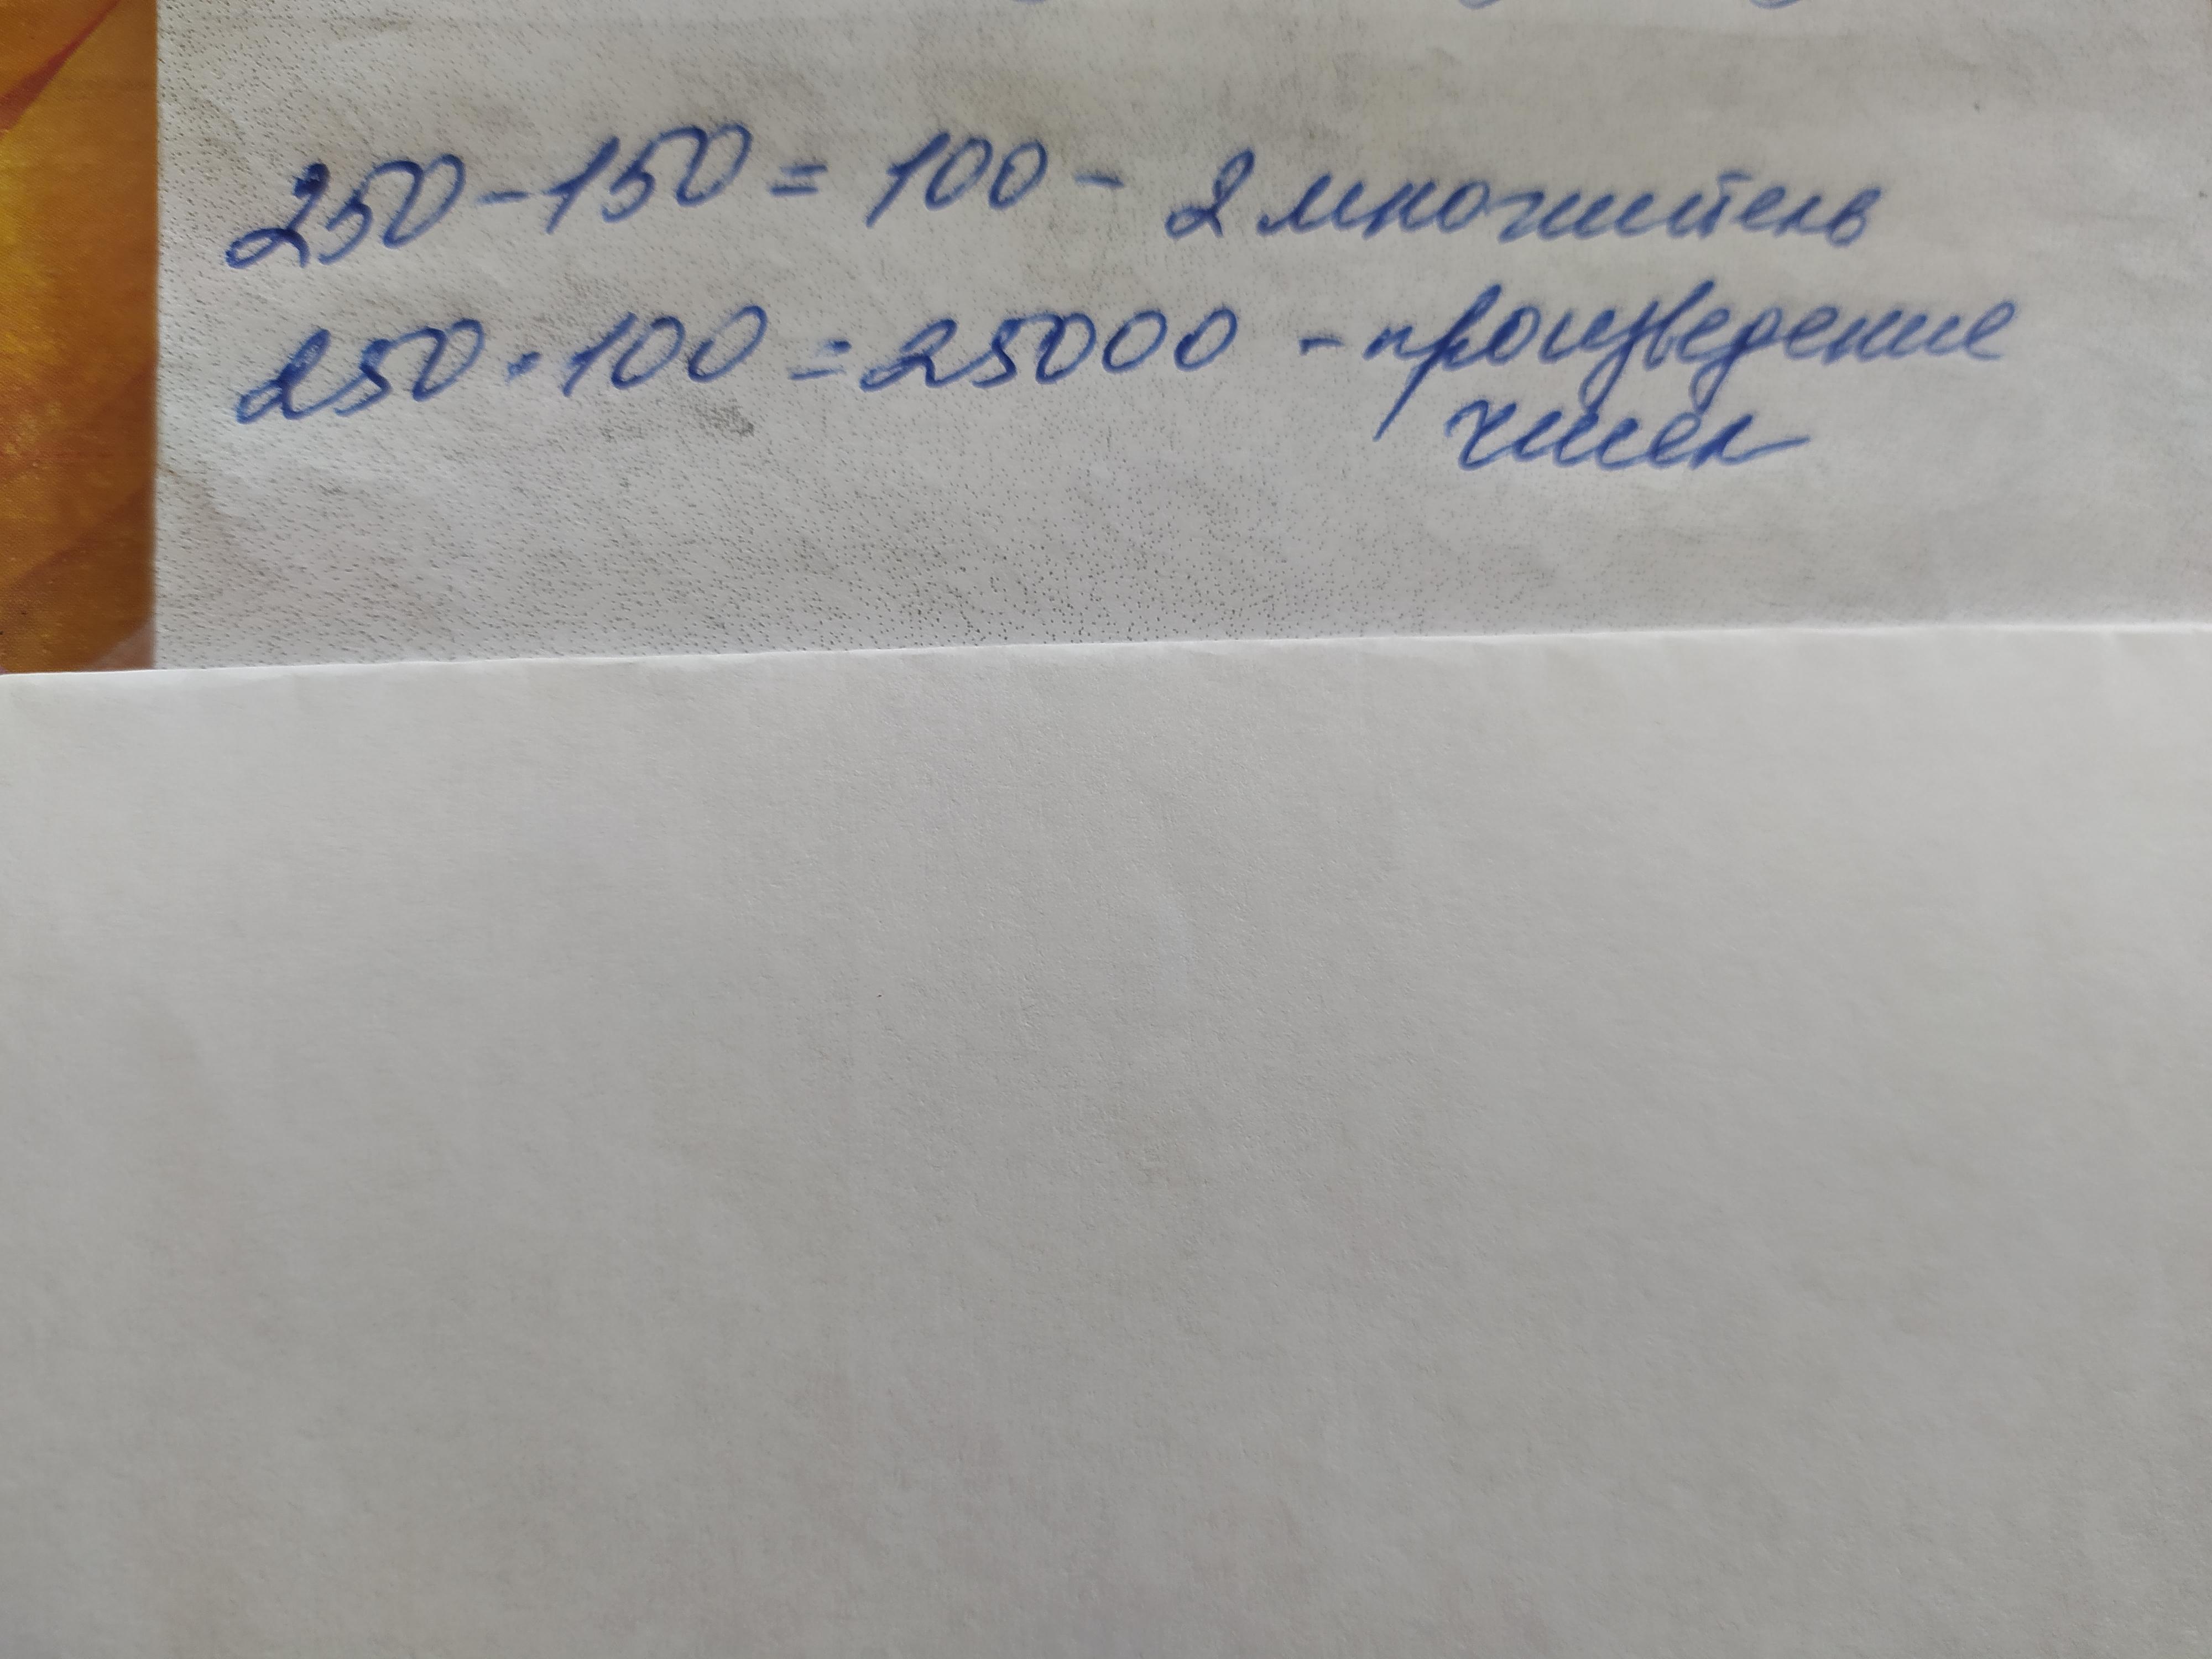 250-150 = 100 - 2 множитель
250 • 100 = 25000 - произведение
чисел